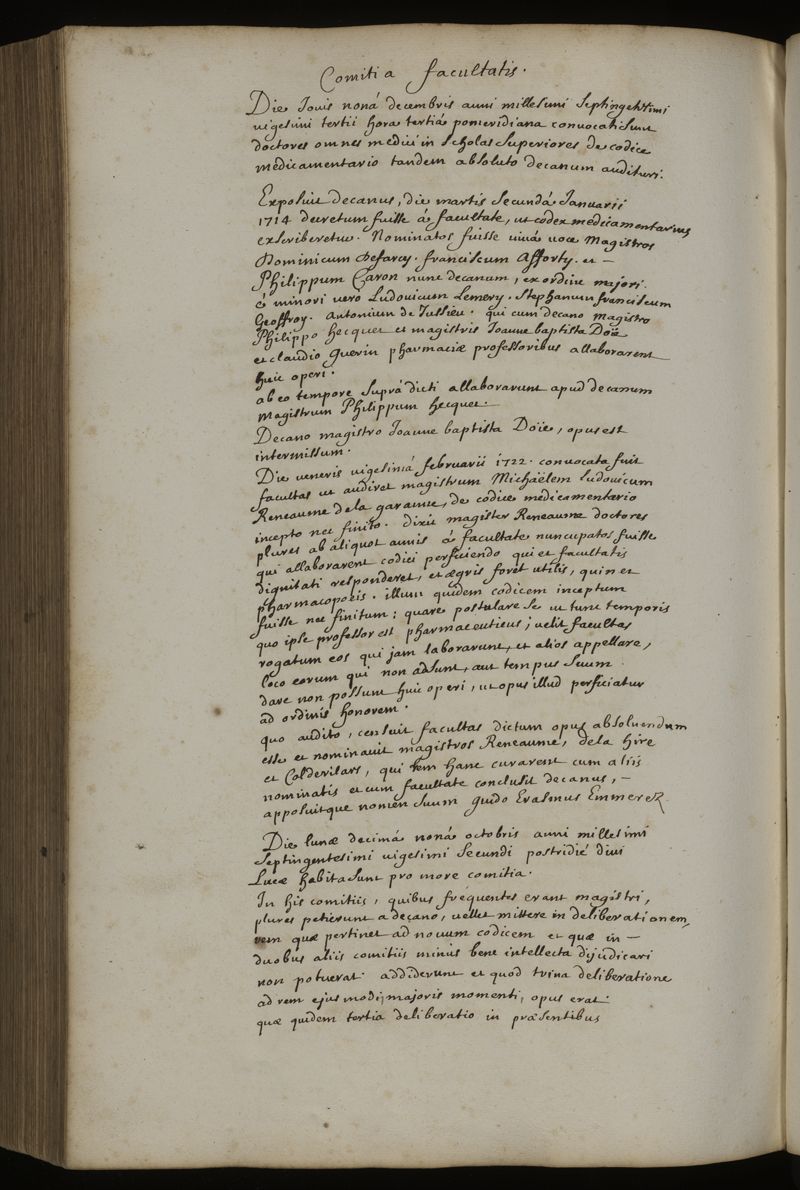 Comitia facultatis.
Die Jovis nonâ decembris anni millesimi septingentesimi
vigesimi tertii hora tertiâ pomeridiana convocati sunt
doctores omnes medici in scholas superiores de codice
medicamentario tandem absoluto decanum audituri.
Exposuit decanus, die martis secundâ Januarii
1714 decretum fuisse à facultate, ut codex medicamentarius
exscriberetur. Nominatos fuisse vivâ voce Magistros
Dominicum Desarcy. franciscum Afforty. et —
Philippum Caron nunc decanum, ex ordine majori.
è minori vero Ludovicum Lemery. Stephanum franciscum
Geoffroy. Antonium de Jussieu. qui cum decano Magistro
Philippo hecquet et magistris Joanne baptista Doïe
et claudio Guerin pharmaciæ professoribus allaborarent
huic operi.
ab eo tempore suprà dicti allaborarunt apud decanum
Magistrum Philippum hecquet.
Decano magistro Joanne baptista Doïe, opus est
intermissum.
Die veneris vigesimâ februarii 1722. convocata fuit
facultas ut audiret magistrum Michaëlem Ludovicum
Reneaume dela garanne, de codice medicamentario
incepto nec finito. dixit magister Reneaume doctores
plures ab aliquot annis à facultate nuncupatos fuisse
qui allaborarent codici perficiendo qui et facultatis
dignitati responderet, et ægris foret utilis, quin et
pharmacopœis. illum quidem codicem inceptum
fuisse nec finitum: quare postulare se ut tunc temporis
quo ipse professor est pharmaceuticus; velit facultas
rogatum eos qui jam laborarunt, et alios appellare,
loco eorum qui non adsunt, aut tempus suum
dare non possunt huic operi, ut opus illud perficiatur
ad ordinis honorem.
quo audito, censuit facultas dictum opus absolvendum
esse et nominavit magistros Reneaume, dela hire
et Coldevilars, qui rem hanc curarent cum aliis
nominatis et cum facultate conclusit decanus, —
apposuitque nomen suum Guido Erasmus Emmerez.
Die lunæ decimâ nonâ octobris anni millesimi
septingentesimi vigesimi secundi postridie divi
Lucæ habita sunt pro more comitia.
In his comitiis, quibus frequentes erant magistri,
plures petierunt a decano, vellet mittere in deliberationem
rem quæ pertinet ad novum codicem et quæ in —
duobus aliis comitiis minus bene intellecta dijudicari
non potuerat. addiderunt et quod trina deliberatione
ad rem ejusmodi, majoris momenti, opus erat.
quæ quidem tertia deliberatio in præsentibus